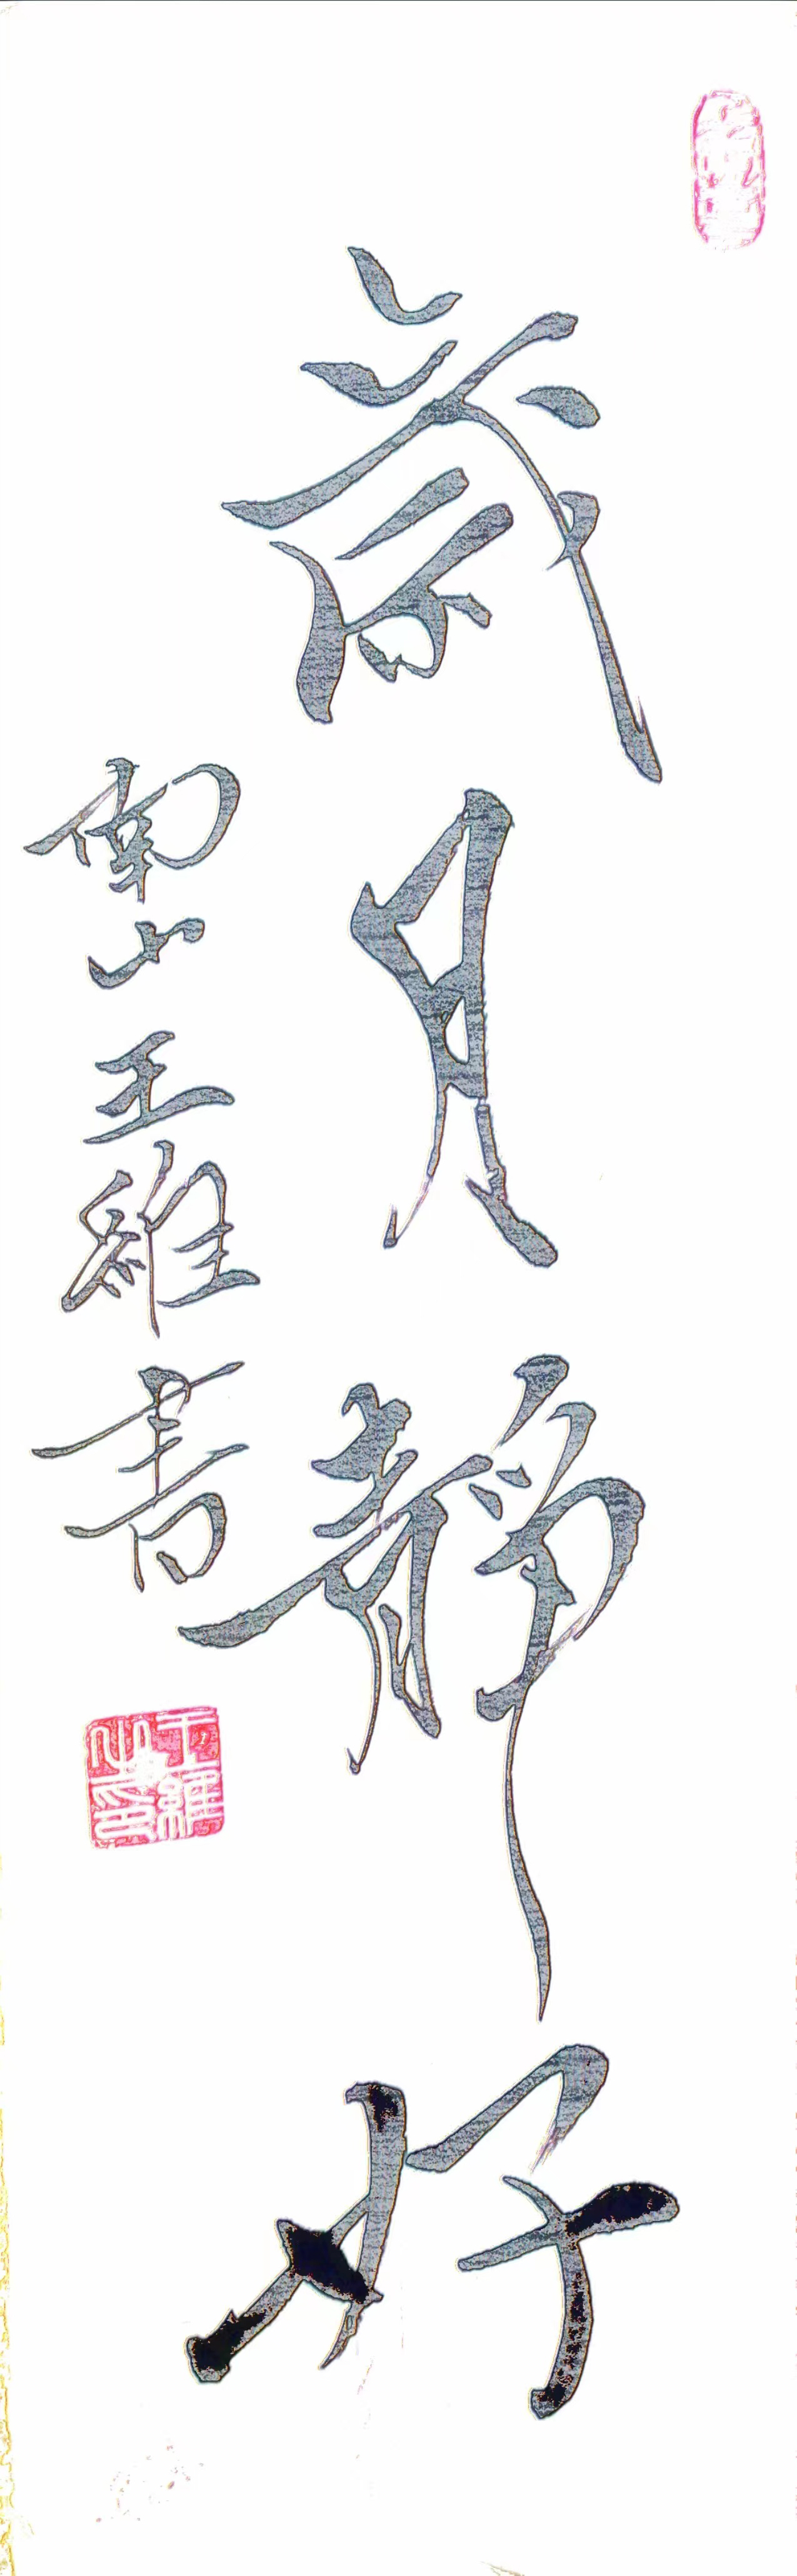 歲月靜好
南山王維書
王維之印